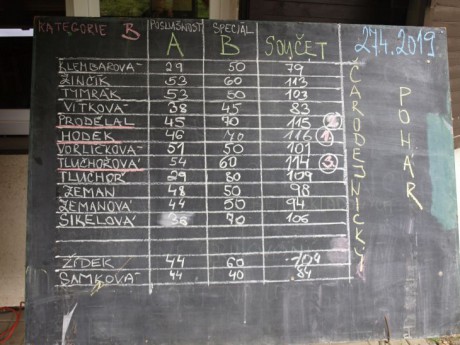 KATEGORIE B POSLUŠNOST A SPECIÁL B SOUČET 27.4.2019
KLEMBAROVÁ 29 50 79
ŽINČÍK 53 60 113
TYMRÁK 53 50 103
VÍTKOVÁ 38 45 83
PRODĚLAL 45 70 115 2
HODEK 46 70 116 1
VORLÍČKOVÁ 51 50 101
TLUCHOŘOVÁ 54 60 114 3
TLUCHOŘ 29 80 109
ZEMAN 48 50 98
ZEMANOVÁ 44 50 94
SIKELOVÁ 36 70 106
ŽÍDEK 44 60 104
SAMKOVÁ 44 40 84
ČARODĚJNICKÝ
POHÁR